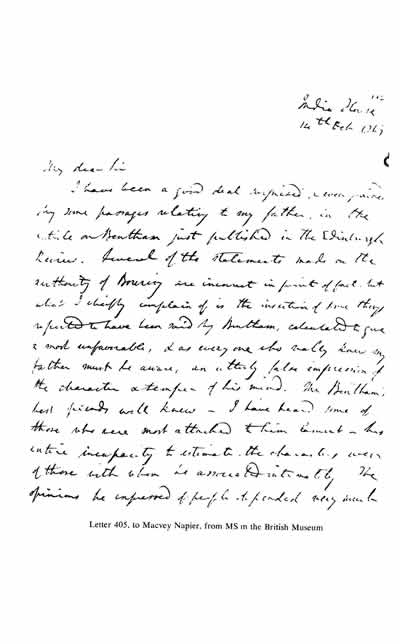 India House
14th Oct 1843
My dear Sir
I have been a good deal surprised, & even pained
by some passages relating to my father, in the
article on Bentham just published in the Edinburgh
Review. Several of the statements made on the
authority of Bowring are incorrect in point of fact. but
what I chiefly complain of is the insertion of some things
reported to have been said by Bentham, calculated to give
a most unfavorable, & as every one who really knew my
father must be aware, an utterly false impression of
the character & temper of his mind. Mr Bentham's
best friends well knew – I have heard some of
those who were most attached to him lament – his
entire incapacity to estimate the characters even
of those with whom he associated intimately. The
opinions he expressed of people depended very much
Letter 405, to Macvey Napier, from MS in the British Museum